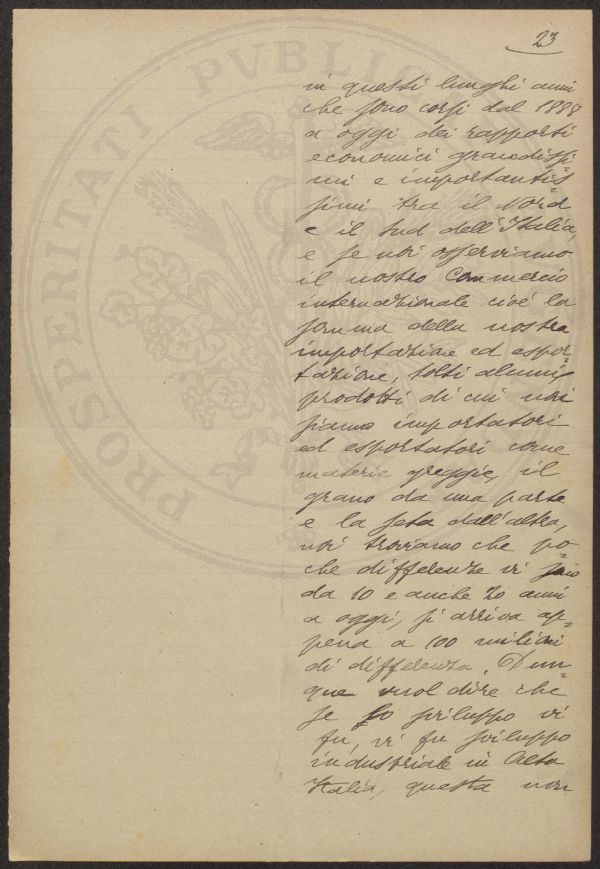 23
PROSPERITATI PVBLIC
in questi lunghi anni
che sono corsi dal 1888
a oggi dei rapporti
economici grandissi
mi e importantis=
simi tra il Nord
e il Sud dell'Italia,
e se noi osserviamo
il nostro Commercio
internazionale cioè la
somma della nostra
importazione ed espor=
tazione, tolti alcuni
prodotti di cui noi
siamo importatori
ed esportatori come
materie greggie, il
grano da una parte
e la seta dall'altra,
noi troviamo che po=
che differenze vi sono
da 10 e anche 20 anni
a oggi, si arriva ap=
pena a 100 milioni
di differenza. Dun=
que vuol dire che
se lo sviluppo vi
fu, vi fu sviluppo
industriale in Alta
Italia, questa non